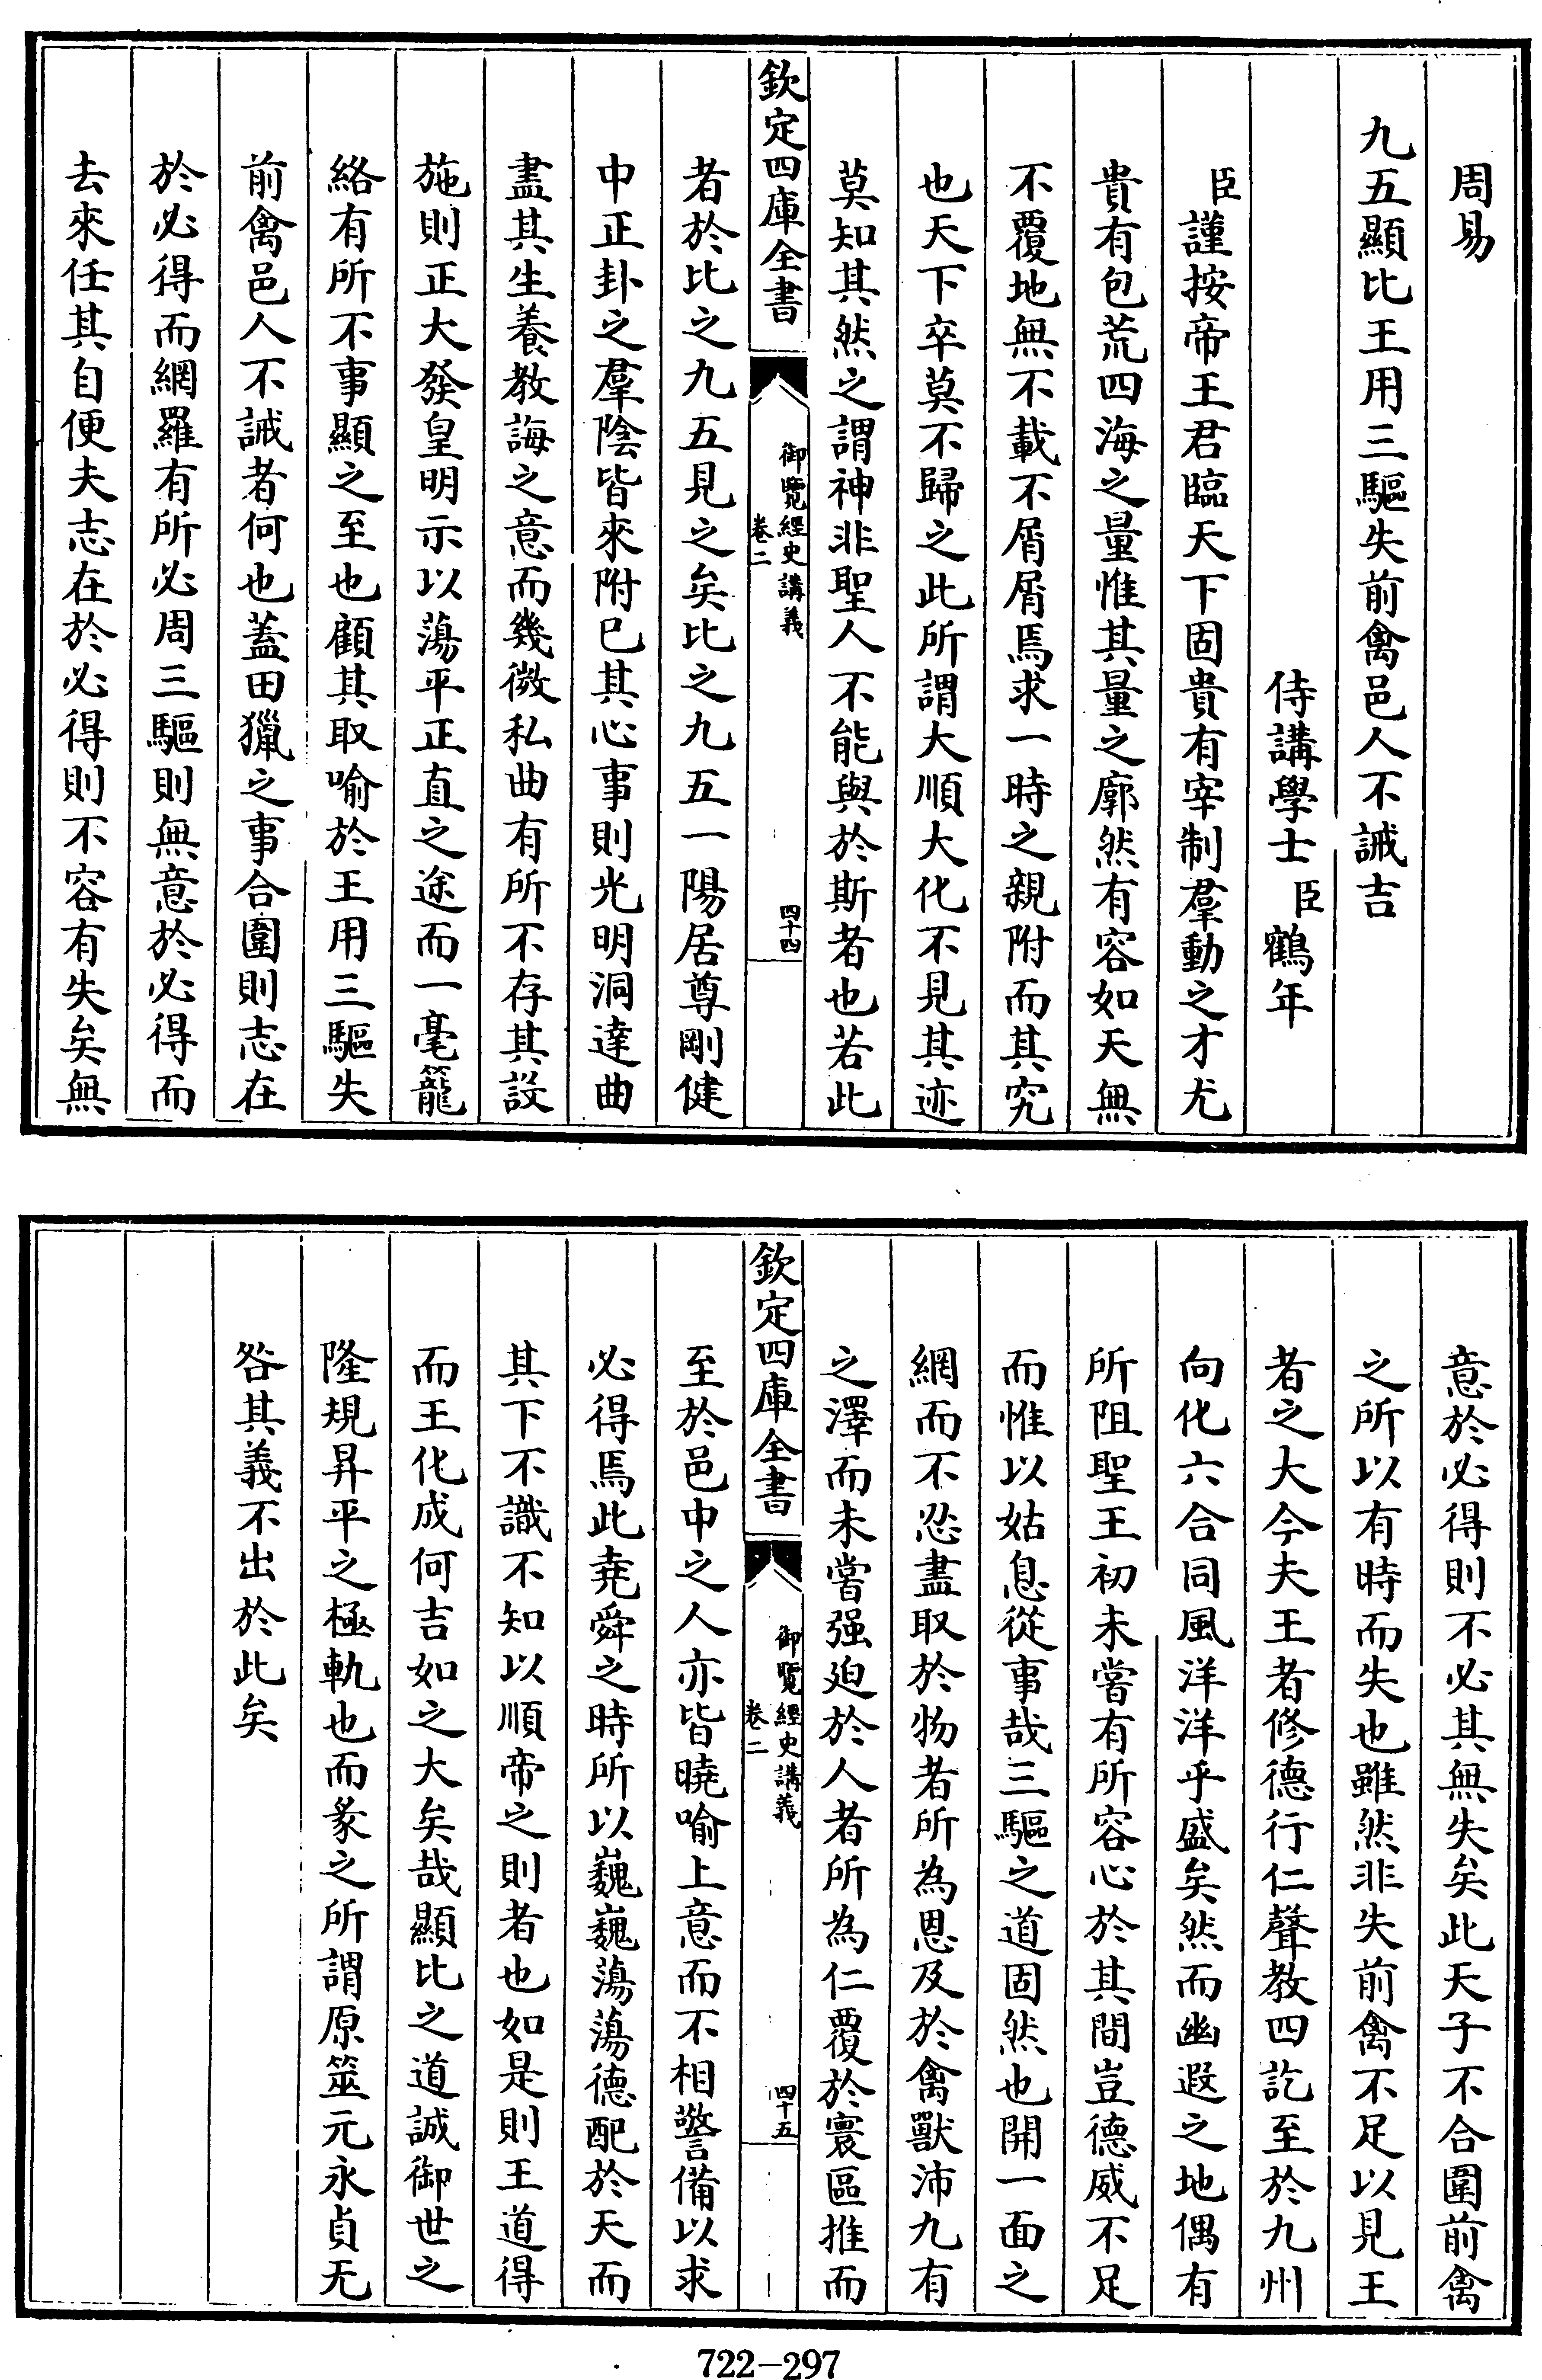 周易
九五顯比王用三驅失前禽邑人不誡吉
侍講學士臣鶴年
臣謹按帝王君臨天下固貴有宰制羣動之才尤
貴有包荒四海之量惟其量之廓然有容如天無
不覆地無不載不屑屑焉求一時之親附而其究
也天下卒莫不歸之此所謂大順大化不見其迹
莫知其然之謂神非聖人不能與於斯者也若此
欽定四庫全書
御覽經史講義
卷二
四十四
者於比之九五見之矣比之九五一陽居尊剛健
中正卦之羣陰皆來附巳其心事則光明洞達曲
盡其生養教誨之意而幾微私曲有所不存其設
施則正大發皇明示以蕩平正直之途而一毫籠
絡有所不事顯之至也顧其取喻於王用三驅失
前禽邑人不誡者何也蓋田獵之事合圍則志在
於必得而網羅有所必周三驅則無意於必得而
去來任其自便夫志在於必得則不容有失矣無
意於必得則不必其無失矣此天子不合圍前禽
之所以有時而失也雖然非失前禽不足以見王
者之大今夫王者修德行仁聲教四訖至於九州
向化六合同風洋洋乎盛矣然而幽遐之地偶有
所阻聖王初未嘗有所容心於其間豈德威不足
而惟以姑息從事哉三驅之道固然也開一面之
網而不忍盡取於物者所為恩及於禽獸沛九有
之澤而未嘗强廹於人者所為仁覆於寰區推而
欽定四庫全書
御覽經史講義
卷二
四十五
至於邑中之人亦皆曉喻上意而不相警備以求
必得焉此堯舜之時所以巍巍蕩蕩德配於天而
其下不識不知以順帝之則者也如是則王道得
而王化成何吉如之大矣哉顯比之道誠御世之
隆規昇平之極軌也而彖之所謂原筮元永貞无
咎其義不出於此矣
722-297